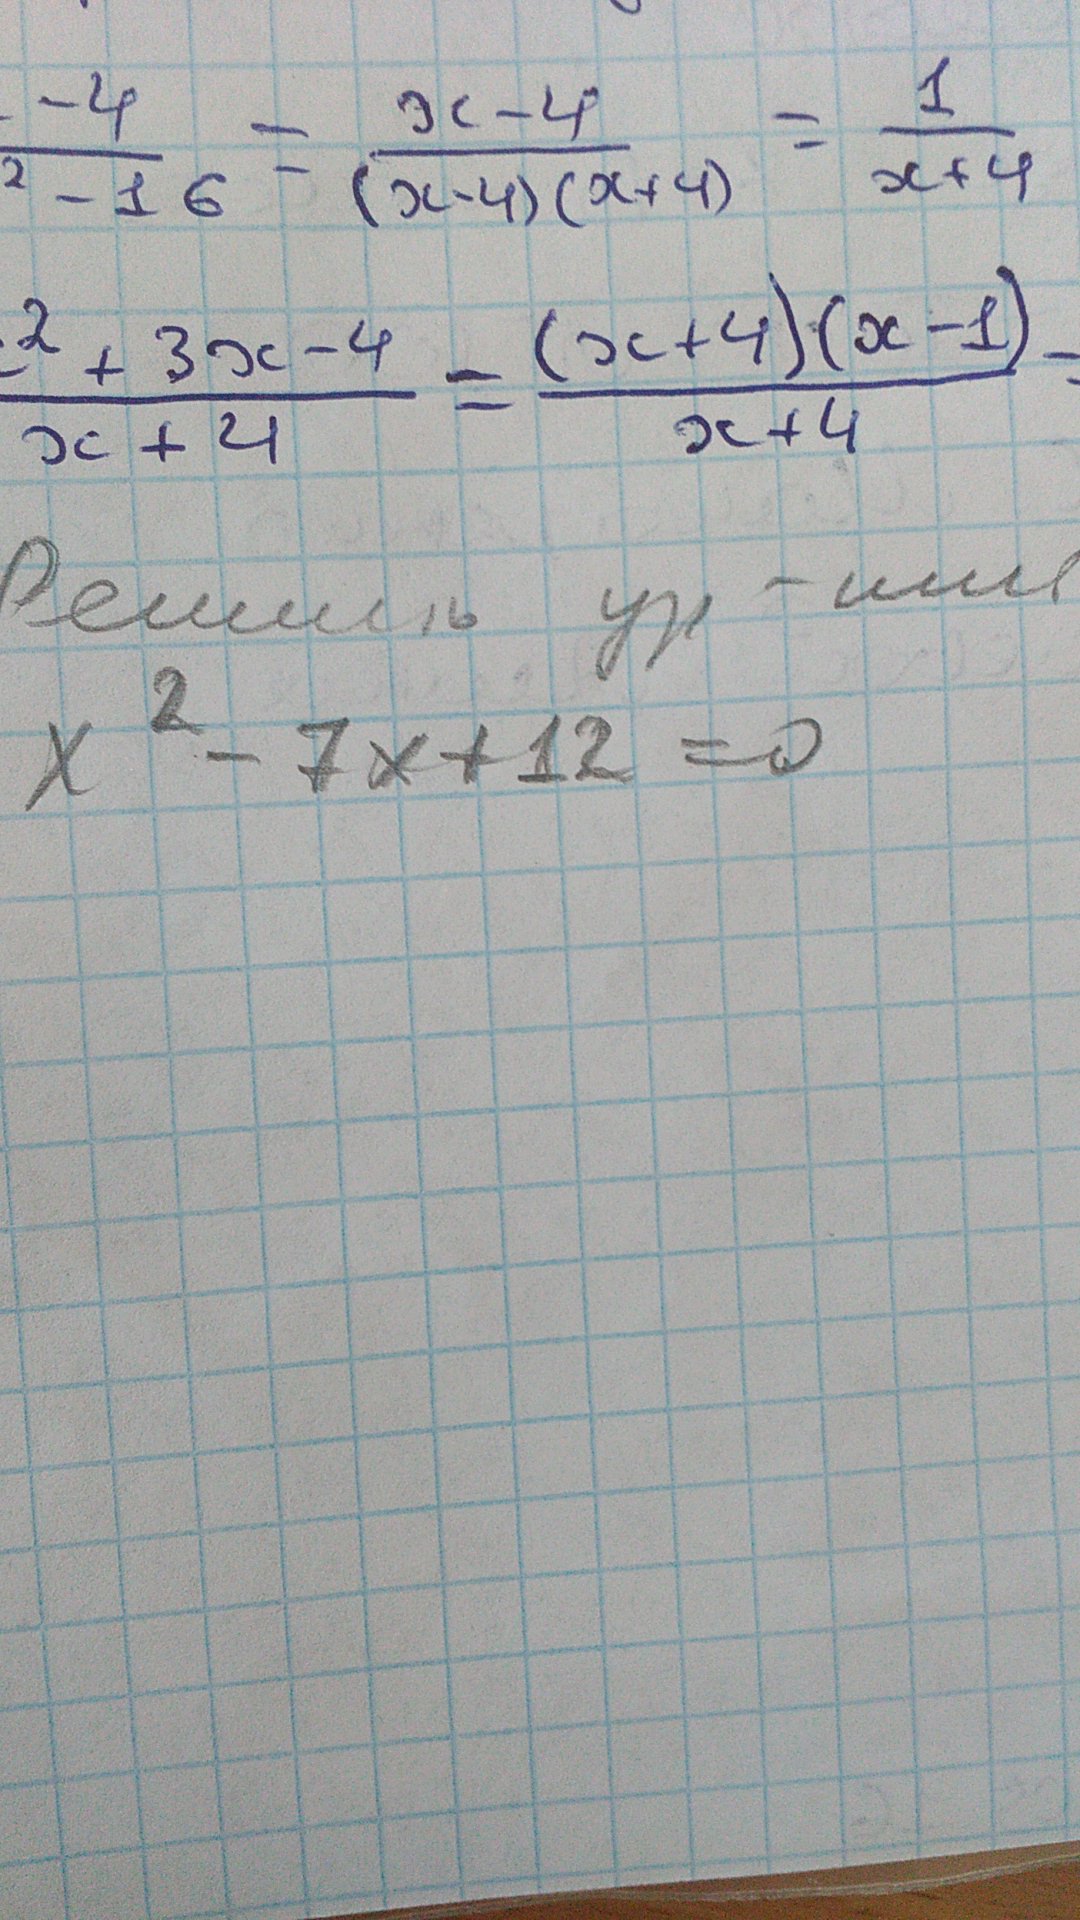 -4 / ² - 16 = x - 4 / (x-4)(x+4) = 1 / x+4
² + 3x - 4 / x + 4 = (x+4)(x-1) / x+4 =
Решить ур-ния
x² - 7x + 12 = 0